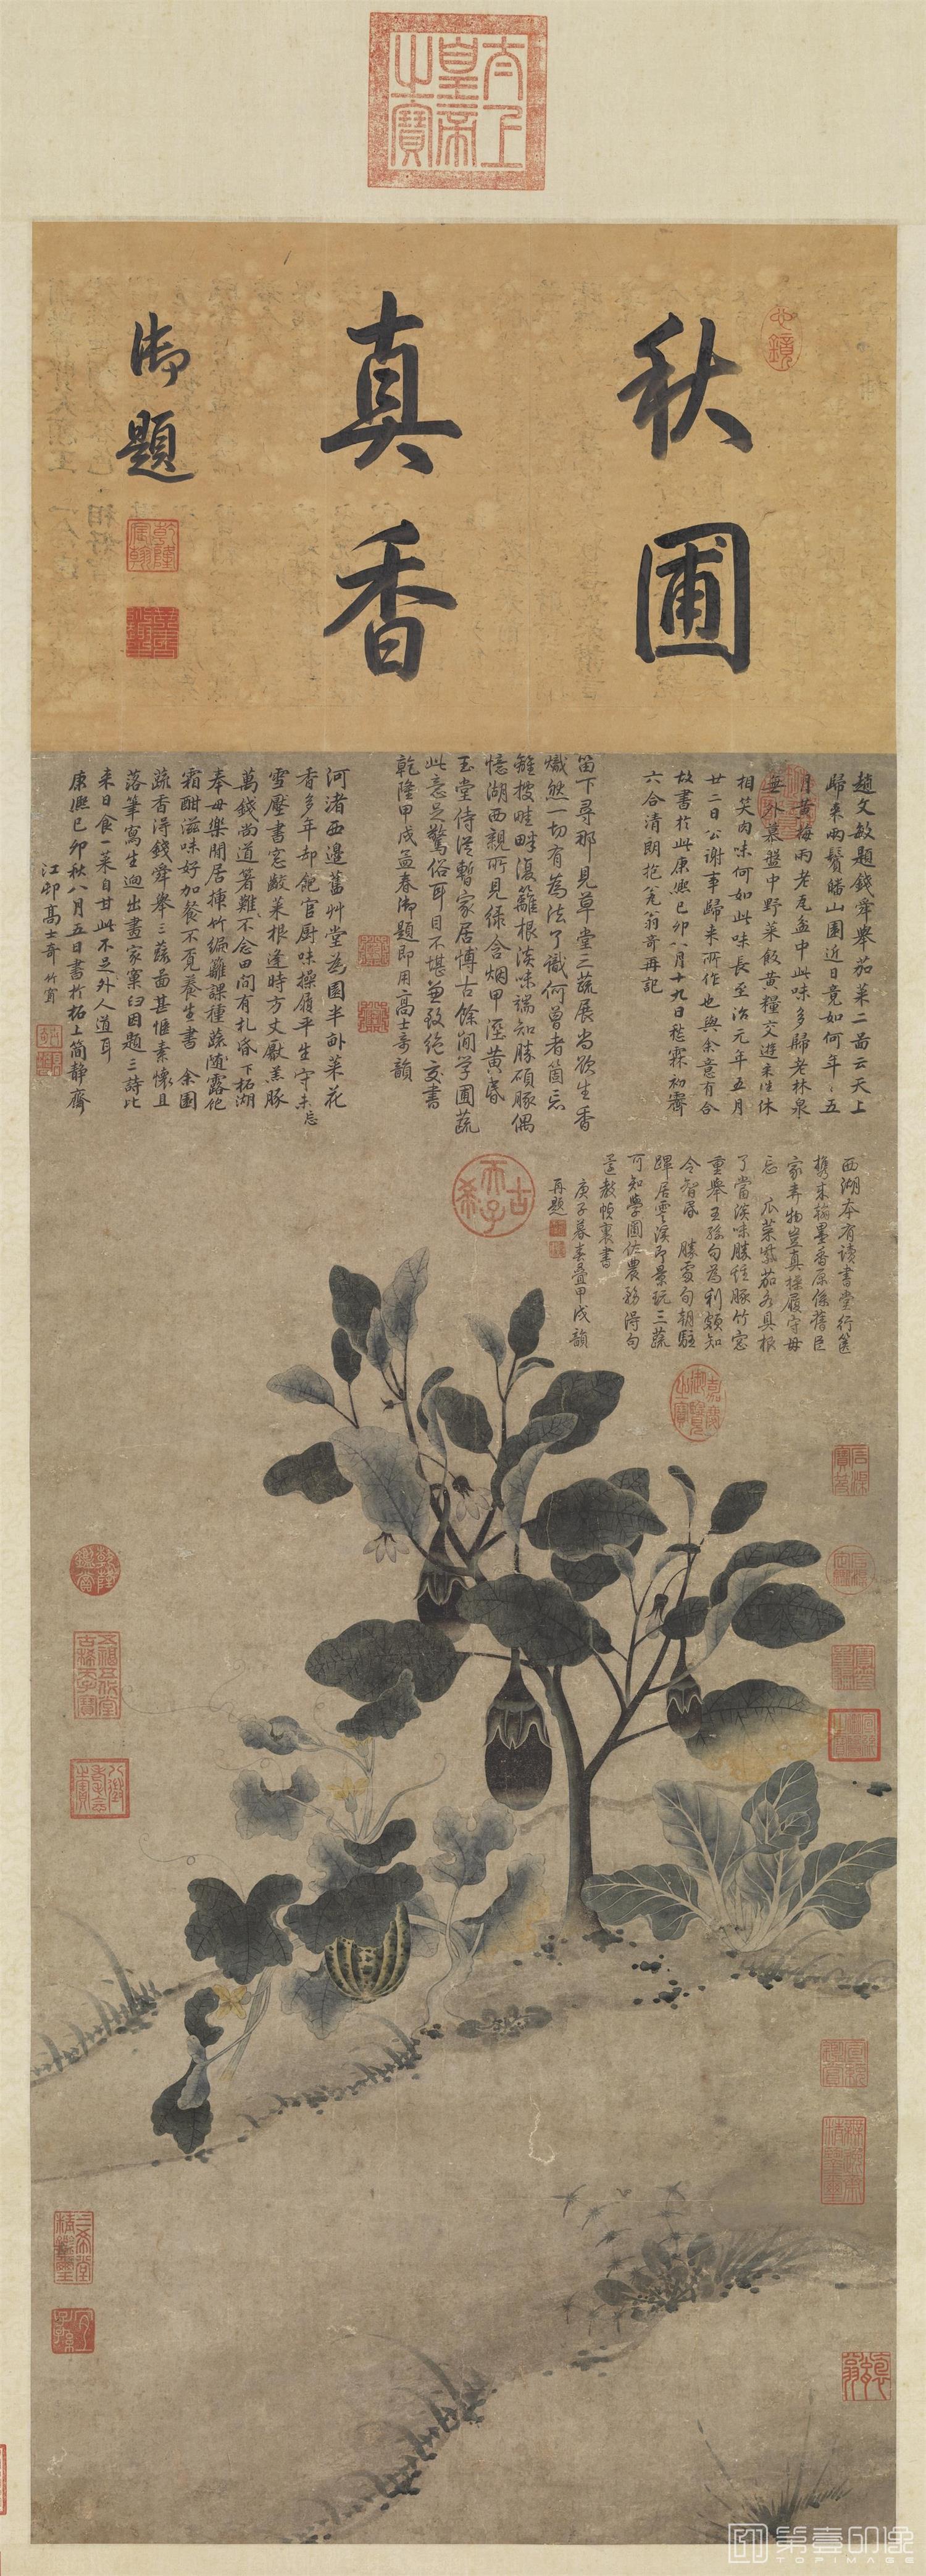 太上
皇帝
之寶
秋圃
真香
御題
趙文敏題錢舜舉茄菜二畫云天上
歸來兩鬢皤山園近日竟如何年年五
月黃梅雨老瓦盆中此味多歸老林泉
無外慕盤中野菜飯黃糧交遊來往休
相笑肉味何如此味長至治元年五月
廿二日公謝事歸來所作也與余意有合
故書於此康熙己卯八月十九日愁霖初霽
六合清朗抱瓮翁奇再記
笛下尋那見草堂三蔬展尚欲生香
熾然一切有為法了識何曾者箇忘
雖披畦畔復籬根淡味端知勝碩豚偶
憶湖西親所見綠含烟甲溼黃昏
玉堂侍從暫家居博古餘閒學圃蔬
此意足驚俗耳目不堪並致絶交書
乾隆甲戌孟春御題即用高士奇韻
河渚西邊舊艸堂為園半卧菜花
香多年却飽官厨味操履平生守未忘
雪壓書窓齩菜根逢時方丈厭羔豚
萬錢尚道箸難下不念田間有札昏 柘湖
奉母樂閒居揀竹編籬課種蔬隨露
霜酣滋味好加餐不覓養生書 余園
蔬香得錢舜舉三蔬畫甚愜素懷且
落筆寫生迥出畫家窠臼因題三詩比
來日食一菜自甘此不足外人道耳
康熙己卯秋八月五日書於柘上簡靜齋
江邨高士奇竹窗
西湖本有讀書堂行篋
携來翰墨香原係舊臣
家弆物豈真操履守毋
忘 瓜菜紫茄各具根
了當淡味勝種豚竹窓
重舉王孫句為利頗知
令智昏 勝處句朝駐
蹕居雲溪即景玩三蔬
可知學圃佐農務得句
還教幀裏書
庚子暮春疊甲戌韻
再題
古
稀
天子
第壹印像
TOPIMAGE